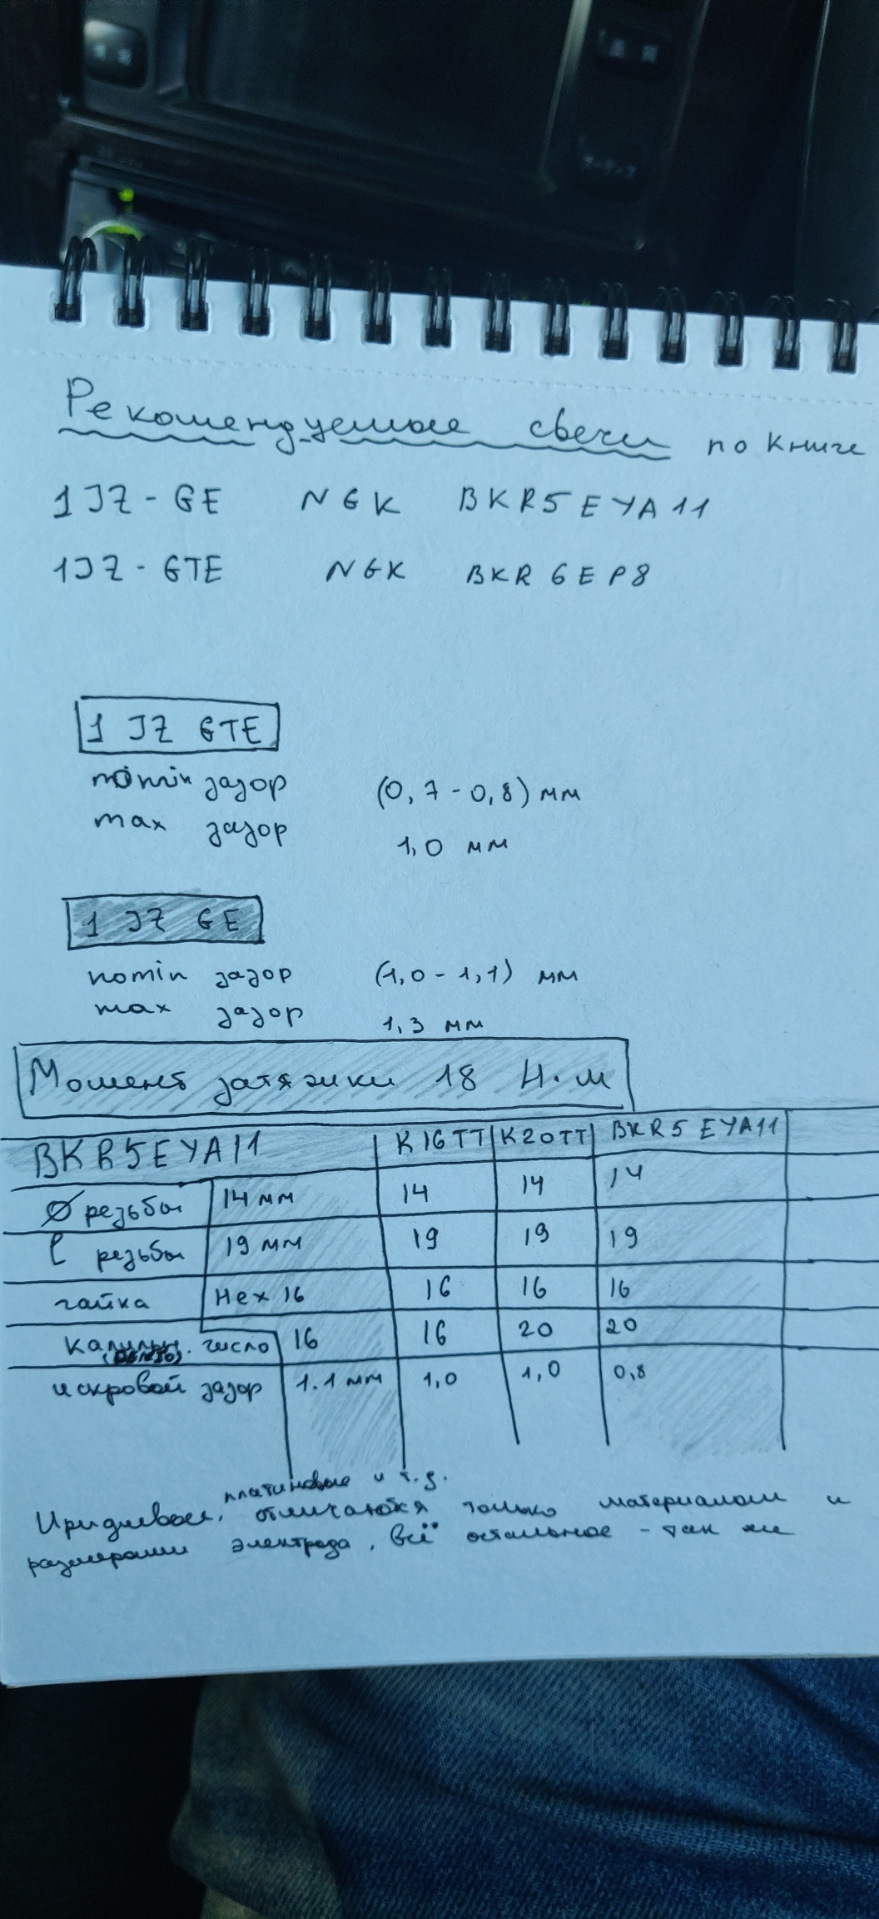 Рекомендуемые свечи по книге
1JZ-GE NGK BKR5EYA11
1JZ-GTE NGK BKR6EP8
1 JZ GTE
nomin зазор (0,7-0,8) мм
max зазор 1,0 мм
1 JZ GE
nomin зазор (1,0-1,1) мм
max зазор 1,3 мм
Момент затяжки 18 Н·м
BKR5EYA11 K16TT K20TT BKR5EYA11
Ø резьбы 14 мм 14 14 14
l резьбы 19 мм 19 19 19
гайка Hex 16 16 16 16
Калильн. число 16 16 20 20
искровой зазор 1.1 мм 1,0 1,0 0,8
платиновые и т.д.
Иридиевые, отличаются только материалом и
размерами электрода, всё остальное - так же